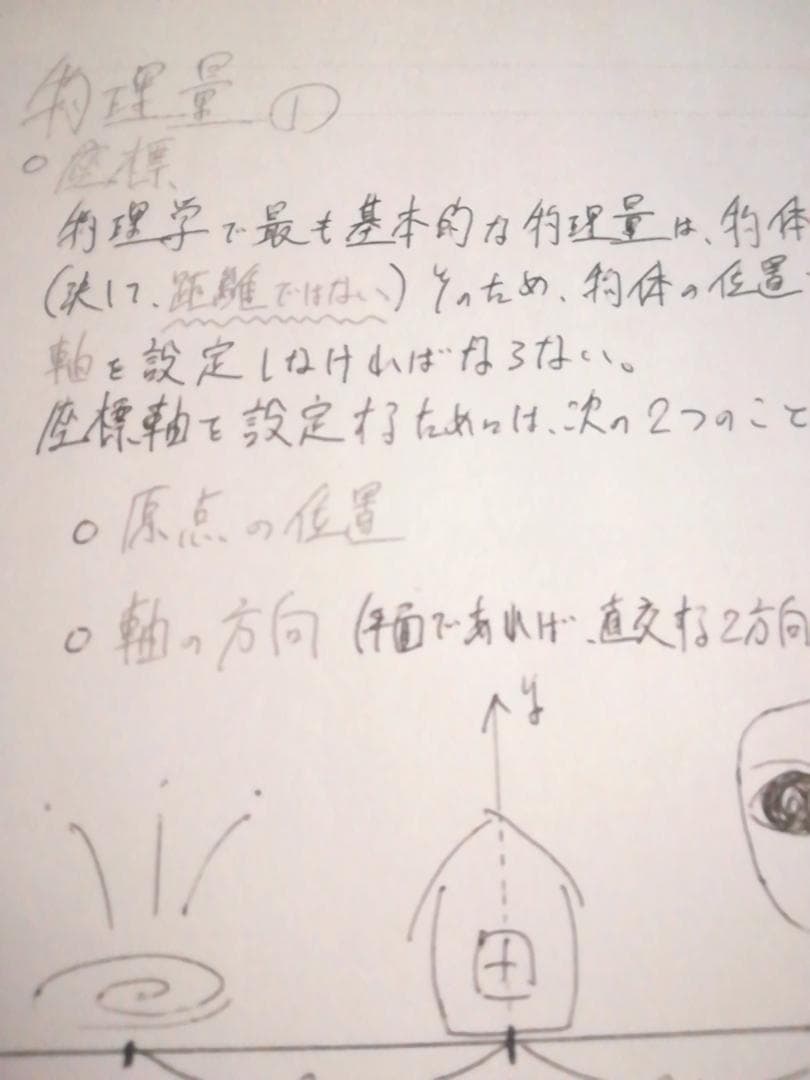 物理量 ①
○ 座標
物理学で最も基本的な物理量は、物体
(決して、距離ではない) そのため、物体の位置
軸を設定しなければならない。
座標軸を設定するためには、次の2つのこと
○ 原点の位置
○ 軸の方向 (平面であれば、直交する2方向
y